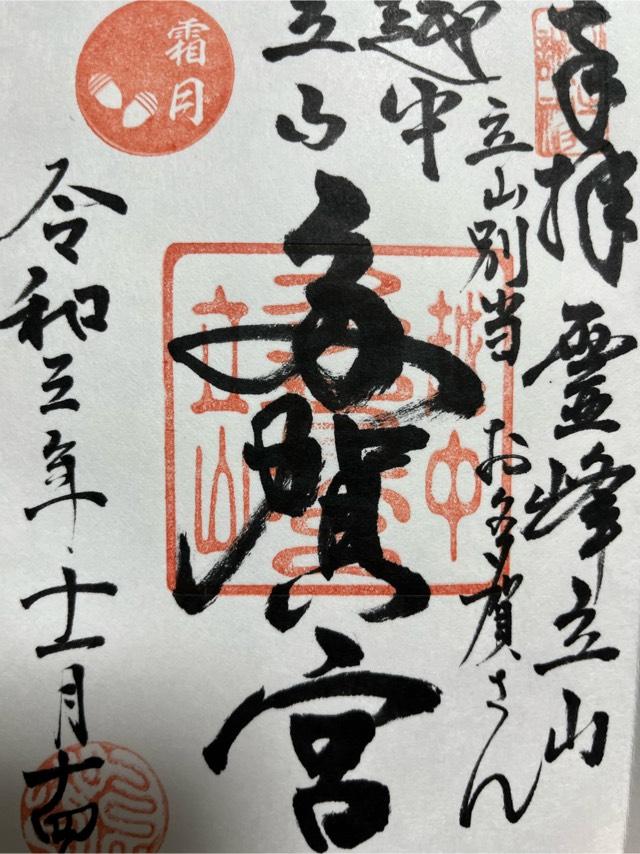 奉拝 霊峰立山
立山別当 お多賀さん
越中
立山
多賀宮
越中
立山
霜月
令和三年十一月十四